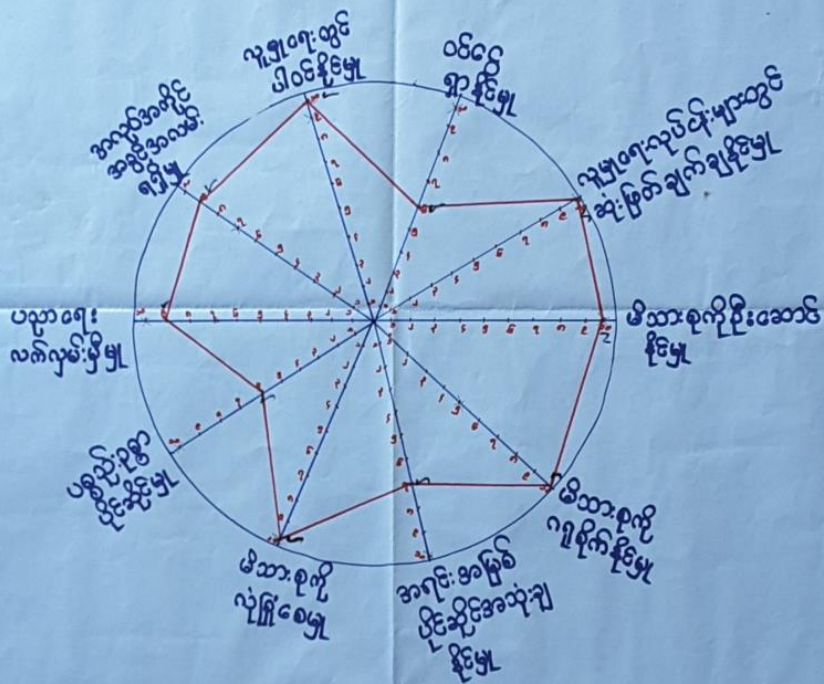 လူမှုရေးတွင်
ပါဝင်နိုင်မှု
ဝင်ငွေ
ရှာနိုင်မှု
လူမှုရေးလုပ်ငန်းများတွင်
ဆုံးဖြတ်ချက်ချနိုင်မှု
မိသားစုကိုဦးဆောင်
နိုင်မှု
မိသားစုကို
ဂရုစိုက်နိုင်မှု
အရင်းအမြစ်
ပိုင်ဆိုင်အသုံးချ
နိုင်မှု
မိသားစုကို
လုံခြုံစေမှု
ပစ္စည်းဥစ္စာ
ပိုင်ဆိုင်မှု
ပညာရေး
လက်လှမ်းမှီမှု
အလုပ်အကိုင်
အခွင့်အလမ်း
ရရှိမှု